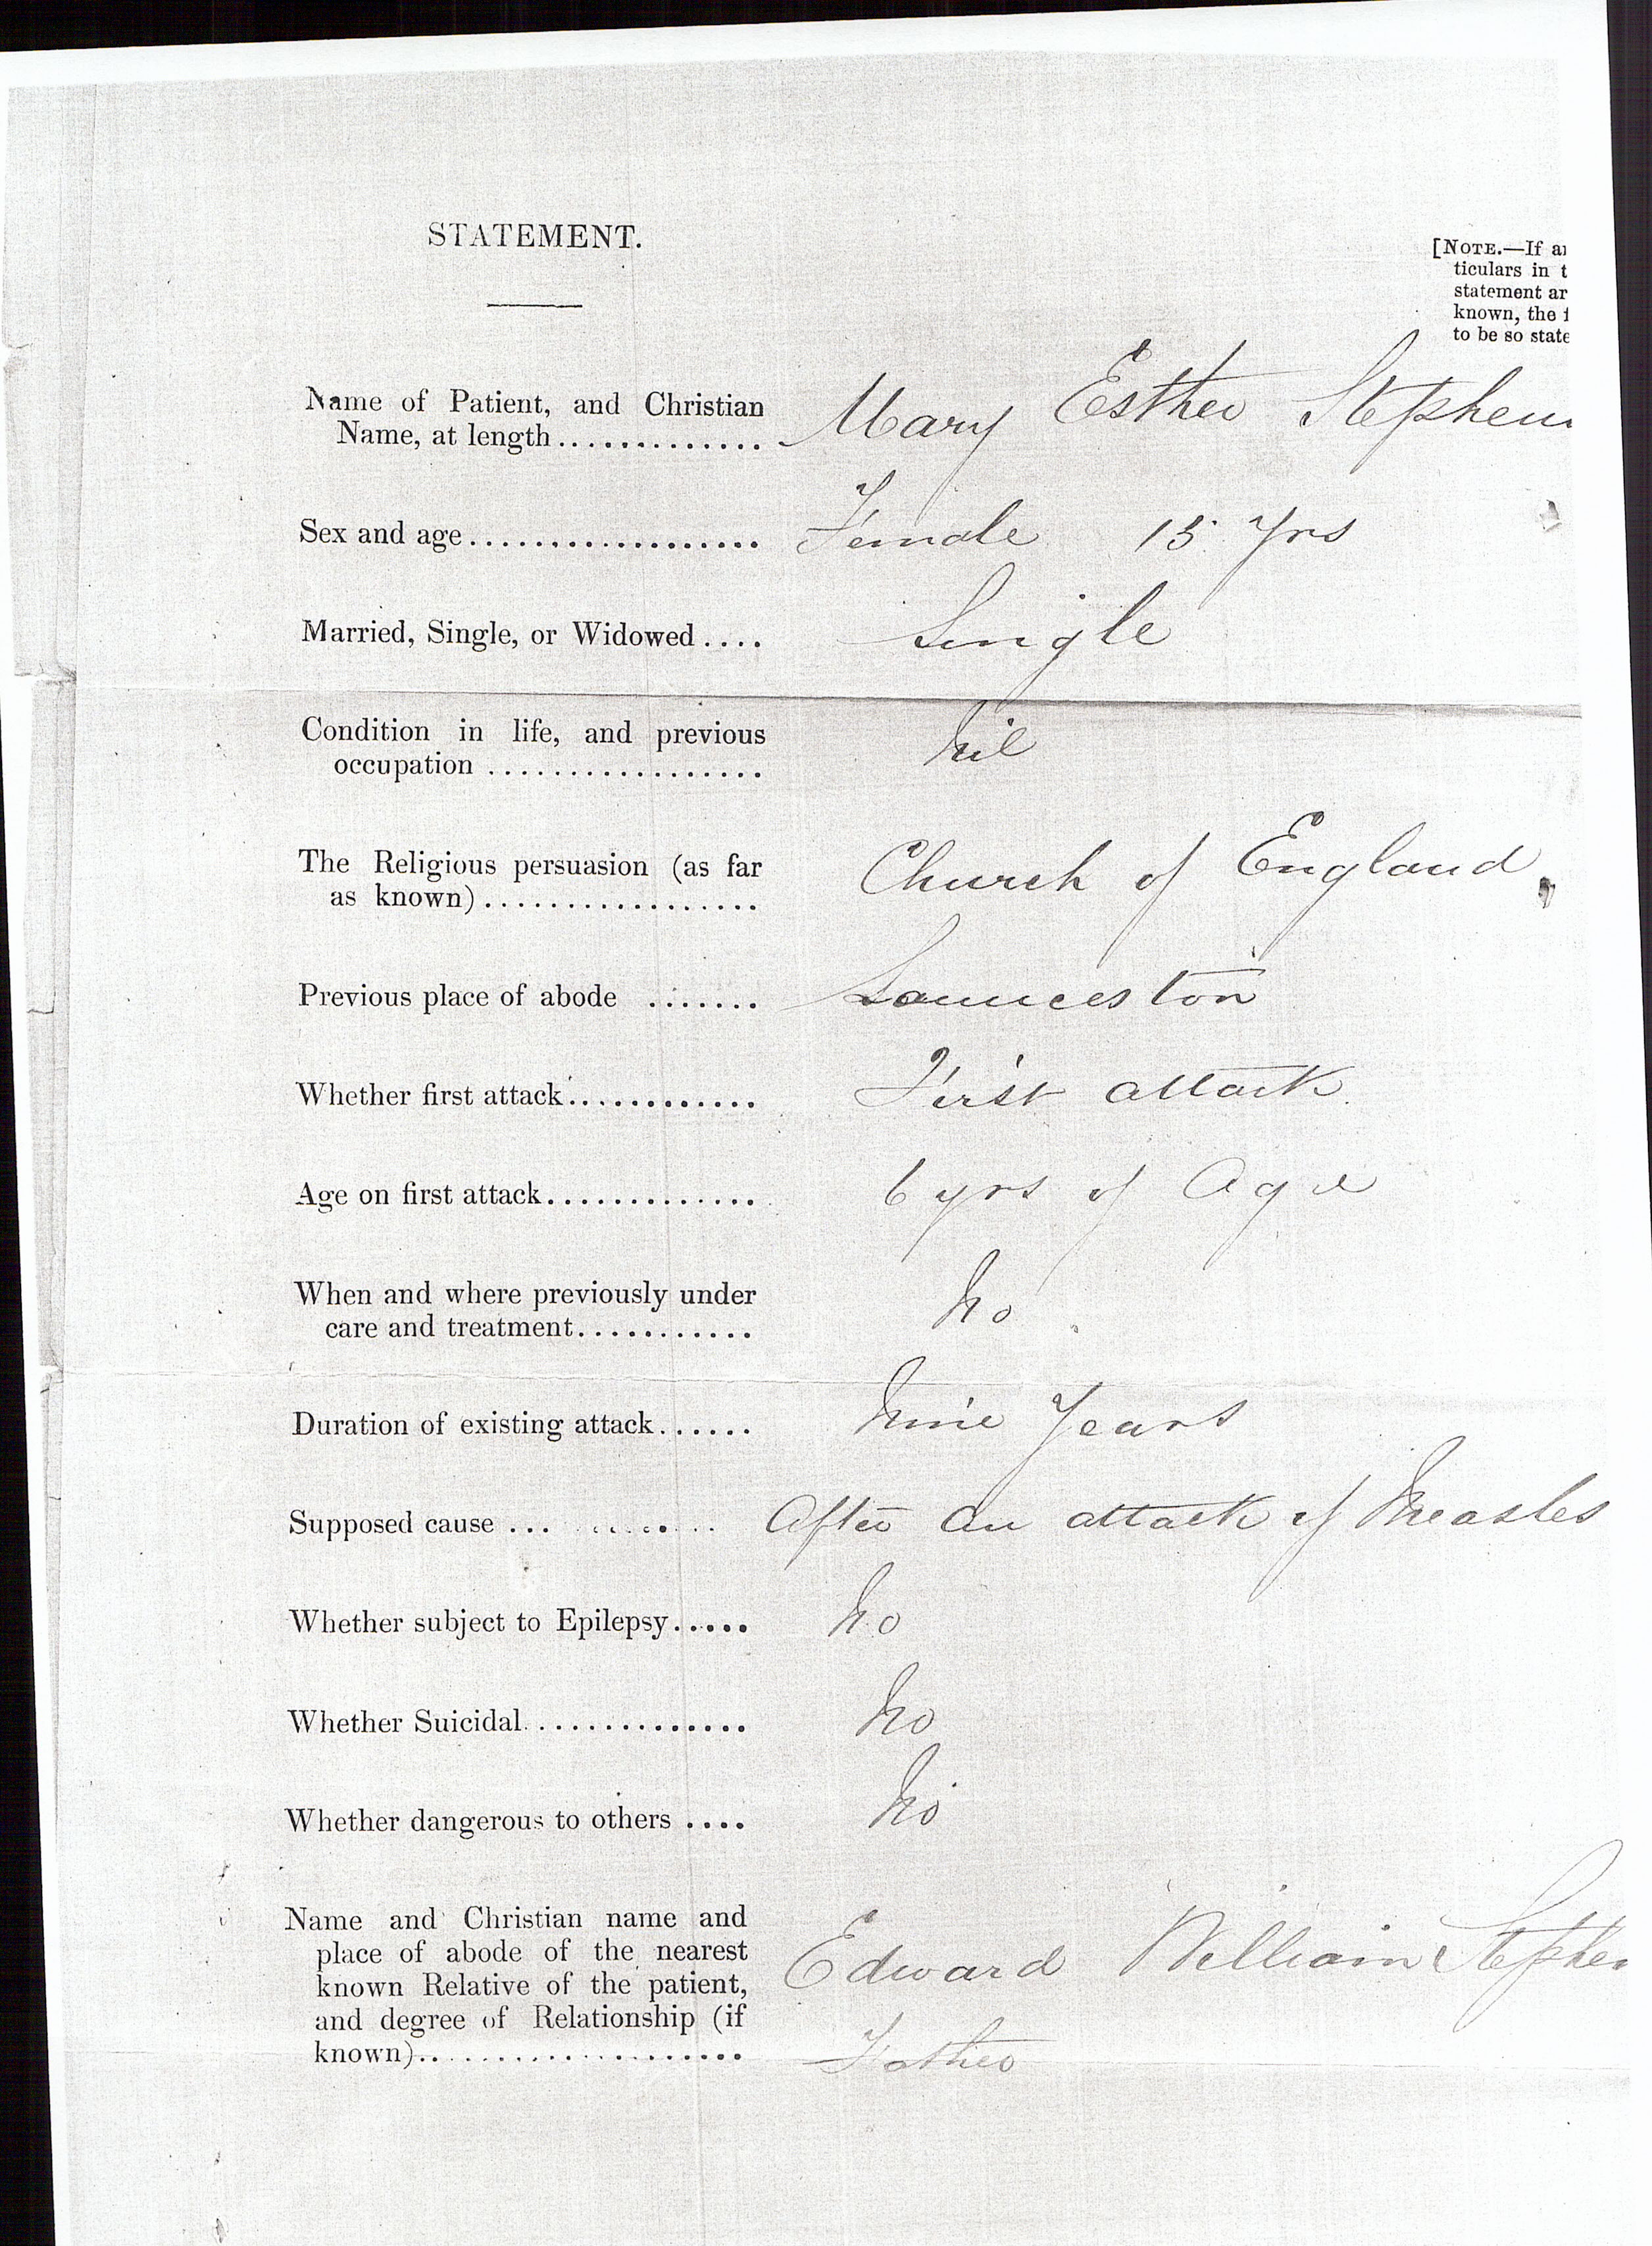 STATEMENT.
[NOTE.—If a
ticulars in t
statement ar
known, the
to be so state
Name of Patient, and Christian
Name, at length.............. Mary Esther Stephen
Sex and age.................. Female 15 Yrs
Married, Single, or Widowed.... Single
Condition in life, and previous
occupation ................. Nil
The Religious persuasion (as far
as known)................. Church of England
Previous place of abode ....... Launceston
Whether first attack............ First attack
Age on first attack............. 6 yrs of Age
When and where previously under
care and treatment........... No
Duration of existing attack...... Nine Years
Supposed cause ... ........ After an attack of Measles
Whether subject to Epilepsy..... No
Whether Suicidal.............. No
Whether dangerous to others .... No
Name and Christian name and
place of abode of the nearest
known Relative of the patient,
and degree of Relationship (if
known).................... Edward William Stephen
Father